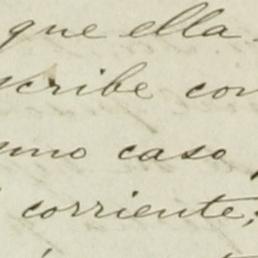 que ella
scribe con
uno caso
corriente;